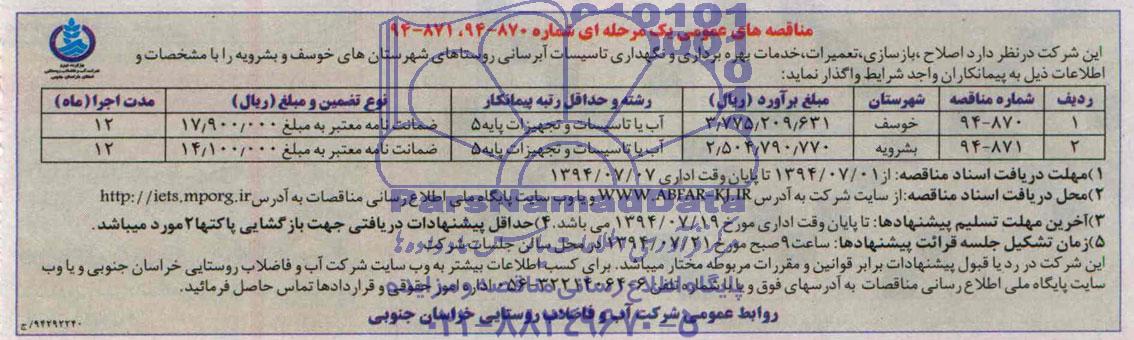 مناقصه های عمومی یک مرحله ای شماره ۸۷۰-۹۴، ۸۷۱-۹۴
این شرکت در نظر دارد اصلاح، بازسازی، تعمیرات، خدمات بهره برداری و نگهداری تاسیسات آبرسانی روستاهای شهرستان های خوسف و بشرویه را با مشخصات و
اطلاعات ذیل به پیمانکاران واجد شرایط واگذار نماید:
ردیف شماره مناقصه شهرستان مبلغ برآورد (ریال) رشته و حداقل رتبه پیمانکار نوع تضمین و مبلغ (ریال) مدت اجرا (ماه)
۱ ۹۴-۸۷۰ خوسف ۳/۷۷۵/۲۰۹/۶۳۱ آب یا تاسیسات و تجهیزات پایه۵ ضمانت نامه معتبر به مبلغ ۱۷/۹۰۰/۰۰۰ ۱۲
۲ ۹۴-۸۷۱ بشرویه ۲/۵۰۴/۷۹۰/۷۷۰ آب یا تاسیسات و تجهیزات پایه۵ ضمانت نامه معتبر به مبلغ ۱۴/۱۰۰/۰۰۰ ۱۲
۱)مهلت دریافت اسناد مناقصه: از ۱۳۹۴/۰۷/۰۱ تا پایان وقت اداری ۱۳۹۴/۰۷/۰۷
۲)محل دریافت اسناد مناقصه: از سایت شرکت به آدرس WWW.ABFAR-KJ.IR و یا وب سایت پایگاه ملی اطلاع رسانی مناقصات به آدرس http://iets.mporg.ir
۳)آخرین مهلت تسلیم پیشنهادها: تا پایان وقت اداری مورخ ۱۳۹۴/۰۷/۱۹ می باشد. ۴)حداقل پیشنهادات دریافتی جهت بازگشایی پاکتها ۲ مورد میباشد.
۵)زمان تشکیل جلسه قرائت پیشنهادها: ساعت ۹ صبح مورخ ۱۳۹۴/۰۷/۲۱ در محل سالن جلسات شرکت.
این شرکت در رد یا قبول پیشنهادات برابر قوانین و مقررات مربوطه مختار میباشد. برای کسب اطلاعات بیشتر به وب سایت شرکت آب و فاضلاب روستایی خراسان جنوبی و یا وب
سایت پایگاه ملی اطلاع رسانی مناقصات به آدرسهای فوق و یا با شماره تلفن ۶-۳۲۲۱۴۰۶۴-۰۵۶ اداره امور حقوقی و قراردادها تماس حاصل فرمائید.
روابط عمومی شرکت آب و فاضلاب روستایی خراسان جنوبی
۹۴۲۹۲۲۴۰/ج
ParsNamadData
پایگاه اطلاع رسانی مناقصه و مزایده
۰۲۱-۸۸۳۴۹۶۷۰-۵